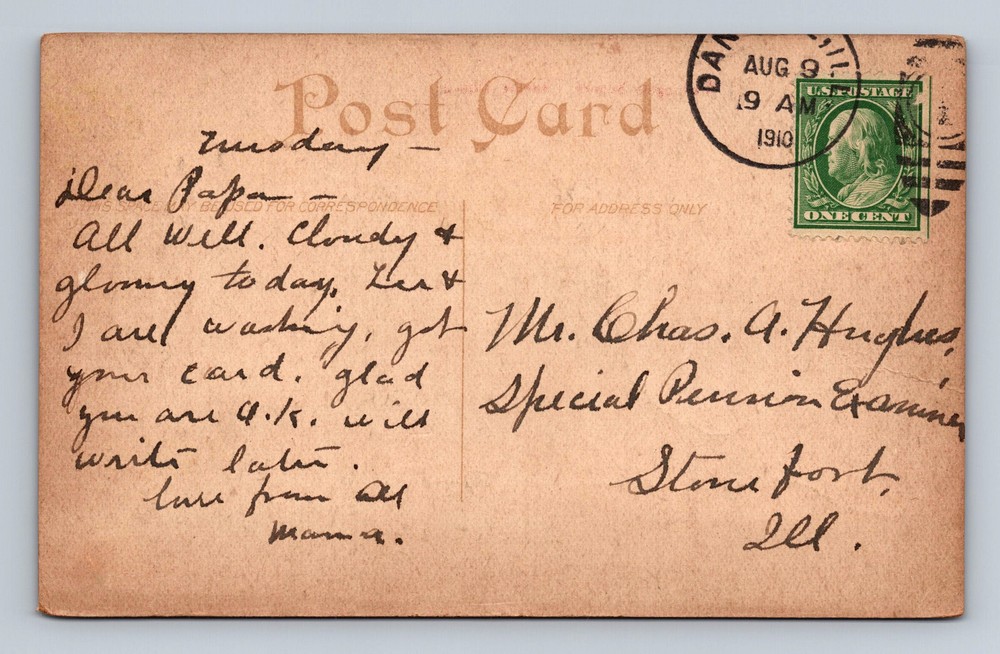 Post Card
DAN
ILL
AUG 9
9 AM
1910
U.S. POSTAGE
ONE CENT
THIS SPACE MAY BE USED FOR CORRESPONDENCE
FOR ADDRESS ONLY
Tuesday –
Dear Papa –
All well. Cloudy &
gloomy today. &
I are washing, got
your card. glad
you are O.K. will
write later.
love from all
Mama.
Mr. Chas. A. Hughes,
Special Pension Examiner
Stone fort,
Ill.